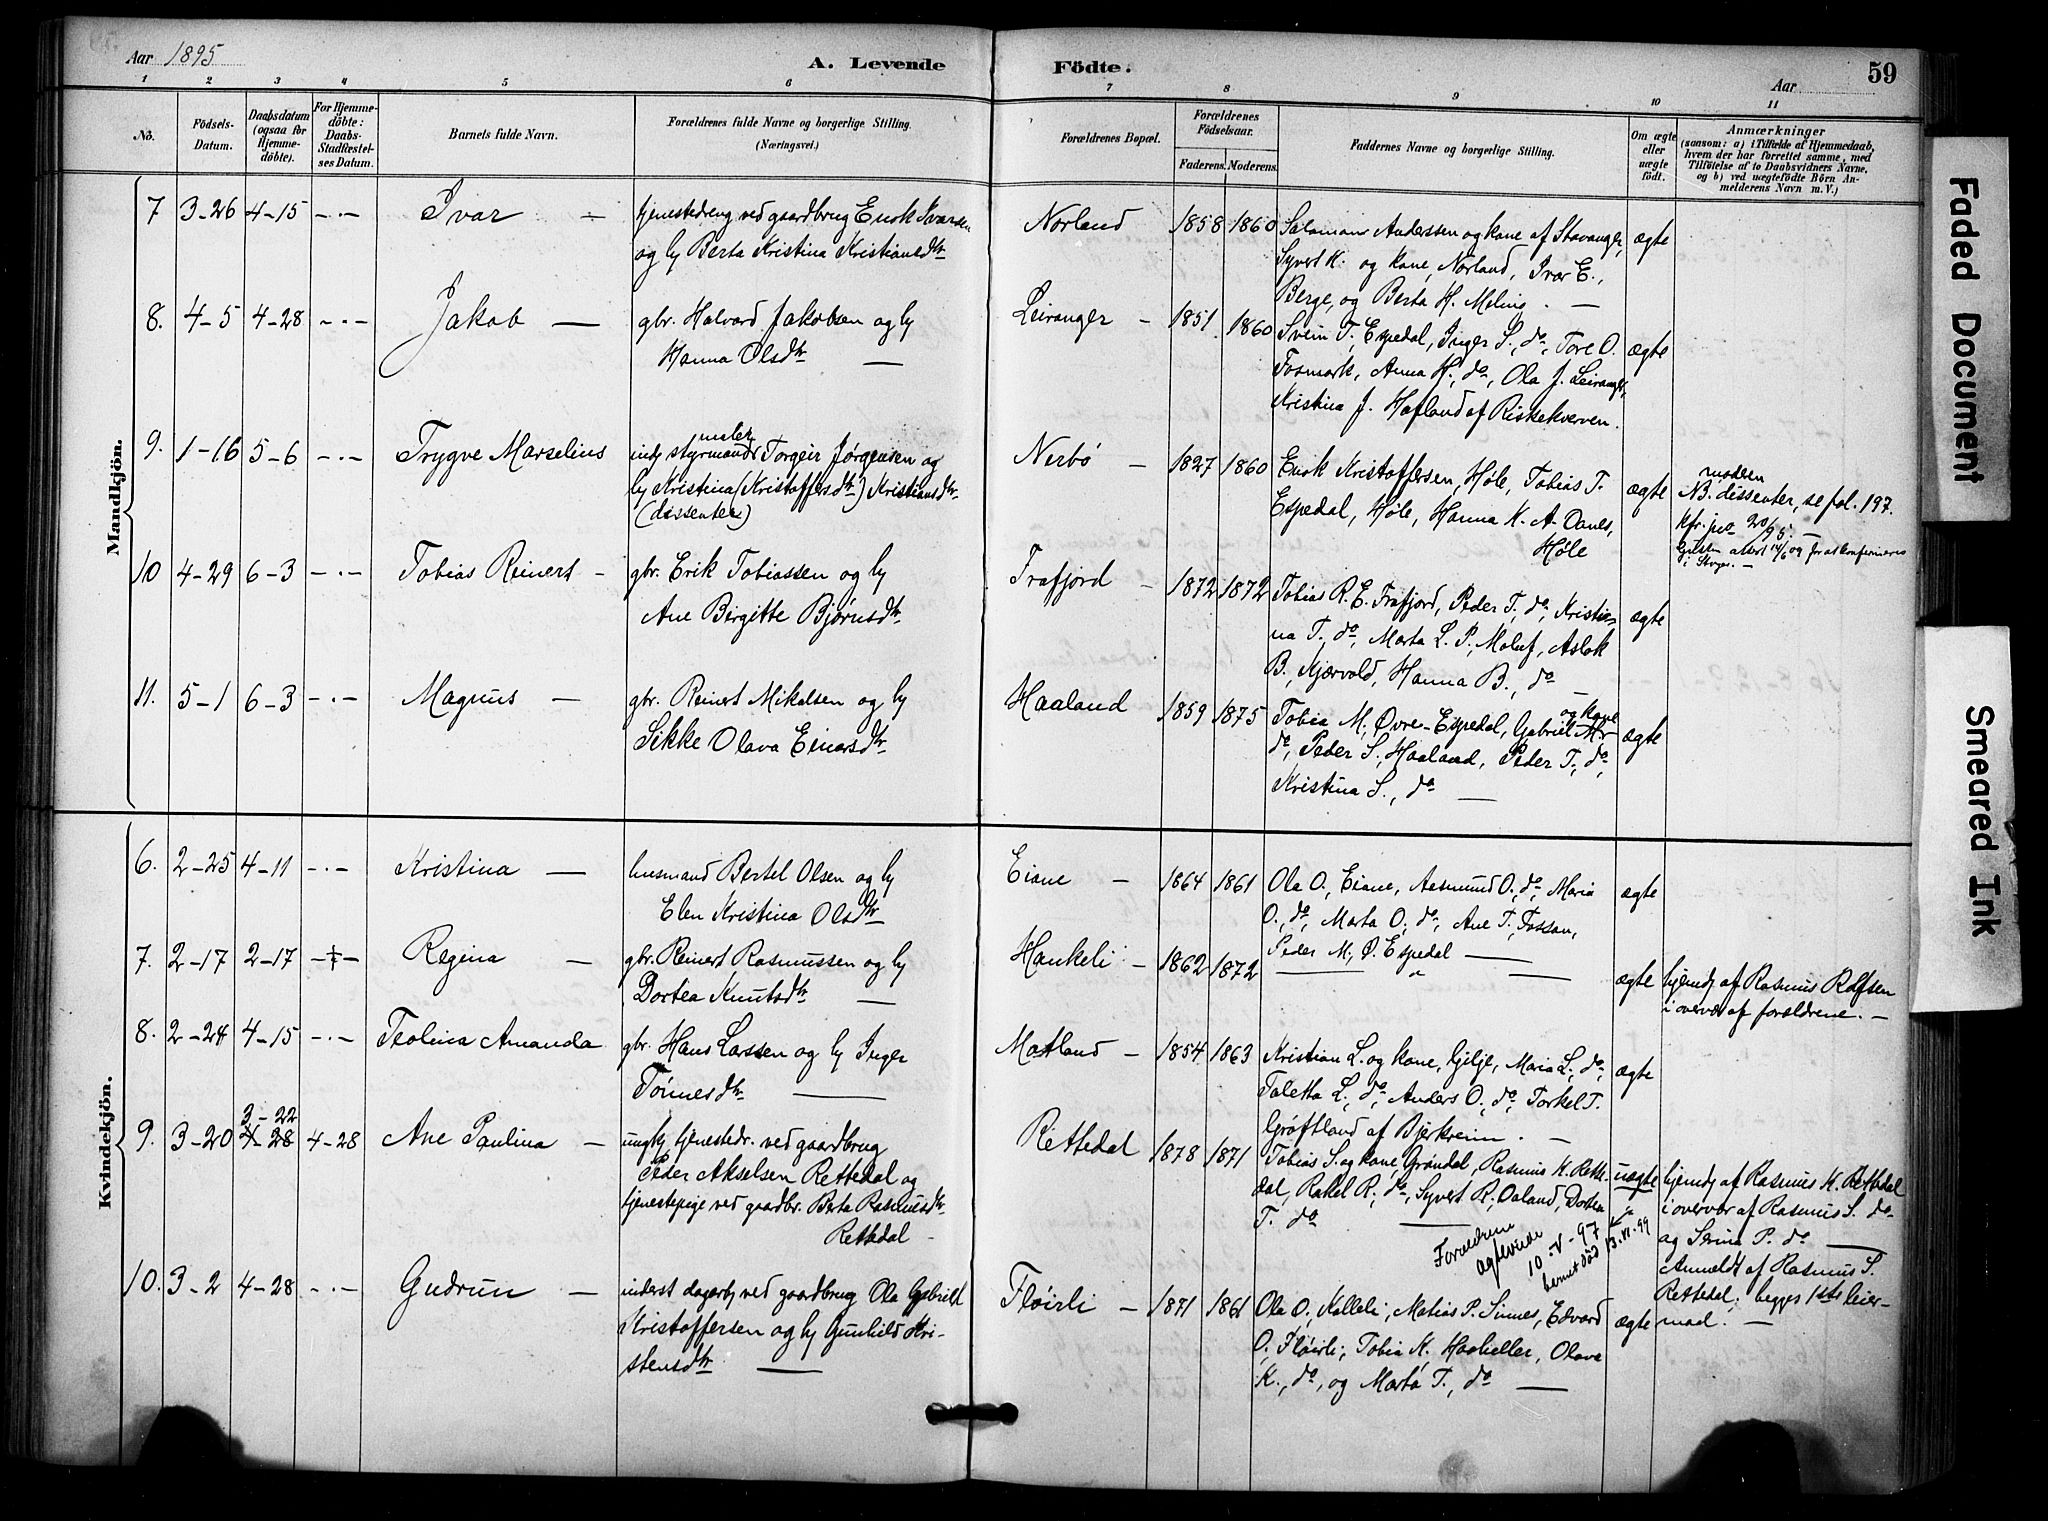 Aar 1895
A. Levende
Födte.
Aar
59
1 2 3 4 5 6 7 8 9 10 11
No.
Födsels-Datum.
Daabsdatum (ogsaa for Hjemme-döbte).
For Hjemme-döbte: Daabs-Stadfæstel-ses Datum.
Barnets fulde Navn.
Forældrenes fulde Navne og borgerlige Stilling.
(Næringsvei.)
Forældrenes Bopæl.
Forældrenes Födselsaar.
Faderens. Moderens.
Faddernes Navne og borgerlige Stilling.
Om ægte eller uægte födt.
Anmærkninger
(saasom: a) i Tilfælde af Hjemmedaab, hvem der har forrettet samme, med Tilföielse af to Daabsvidners Navne, og b) ved uægtefödte Börn An-melderens Navn m. V.)
Mandkjön.
7 3-26 4-15 -·- Ivar —
tjenestedreng ved gaardbrug Enok Ivarsen
og hy Berta Kristina Kristiansdtr
Norland 1858 1860
Salomon Anderssen og kone af Stavanger,
Syvert K. og kone, Norland, Ivar E.,
Berge, og Berta H. Meling. —
ægte
8. 4-5 4-28 -·- Jakob —
gbr. Halvard Jakobsen og hy
Hanna Olsdtr —
Leiranger — 1851 1860
Svein T. Espedal, Inger S., do, Tore O.
Fosmark, Anna H., do, Ola J. Leiranger,
Kristina J. Hafland af Riskekverven.
ægte
9. 1-16 5-6 -·- Trygve Marselius
styrmand Torgeir Jørgensen og
hy Kristina (Kristoffersdtr) Kristiansdtr
(dissenter)
Nerbö — 1827 1860
Enok Kristoffersen, Høle, Tobias T.
Espedal, Høle, Hanna K. A. Danes,
Høle
ægte
moderen
NB. dissenter, se fol. 197.
10 4-29 6-3 -·- Tobias Reinert -
gbr. Erik Tobiassen og hy
Ane Birgitte Bjørnsdtr
Frafjord — 1872 1872
Tobias R. E. Frafjord, Peder T., do, Kristi-
na T., do, Marta L. P., Molaf, Aslak
B., Kjærvold, Hanna B., do
ægte
11. 5-1 6-3 -·- Magnus —
gbr. Reinert Mikalsen og hy
Sikke Olava Einarsdtr
Haaland 1859 1875
og kone
Tobia M. Øvre-Espedal, Gabriel M.
do, Peder S., Haaland, Peder T., do,
Kristina S., do —
ægte
Kvindekjön.
6. 2-25 4-11 -·- Kristina —
husmand Bertel Olsen og hy
Elen Kristina Olsdtr
Eiane — 1864 1861
Ola O., Eiane, Aasmund O., do, Maria
O., do, Marta O., do, Ane T., Fossan,
Peder M., Ø. Espedal —
ægte
7. 2-17 2-17 -‡- Regina —
gbr. Reinert Rasmussen og hy
Dortea Knutsdtr —
Hankeli — 1862 1872
ægte
hjemdy af Rasmus Rolfsen
i overvær af forældrene. —
8. 2-24 4-15 -·- Teolina Amanda
gbr. Hans Larsen og hy Inger
Tönnesdtr —
Matland — 1854 1863
Kristian L. og kone, Gjilje, Maria L., do,
Taletta L., do, Anders O., do, Torkel T.
Grøftland af Bjerkreim. —
ægte
9. 3-20 3-22 4-28 4-28 Ane Paulina —
ungk tjenestedr. ved gaardbrug
Peder Akselsen Rettedal og
tjenestepige ved gaardbr. Berta Rasmusdtr
Rettedal -
Rettedal 1878 1871
Tobias S. og kone, Grøndal, Rasmus K. Rette-
dal, Rakel R., do, Syvert R., Daland, Dortea
T. do —
uægte
Forældrene
ægteviede
10-V-97
barnet död 13.VI.99
hjemdy af Rasmus K. Rettedal
i overvær af Rasmus S. do
og Serina P. do —
Anmeldt af Rasmus S.
Rettedal; begges 1ste leier-
maal. —
10. 3-2 4-28 -·- Gudrun —
inderst dagarb. ved gaardbrug Ola Gabriel
Kristoffersen og hy Gunhild Kri-
stensdtr —
Fløirli — 1871 1861
Ola O., Kalleli, Matias P. Sinnes, Edvard
O., Fløirli, Tobia K. Haaheller, Olava
K., do, og Marta T., do —
ægte
Faded Document
Smeared Ink